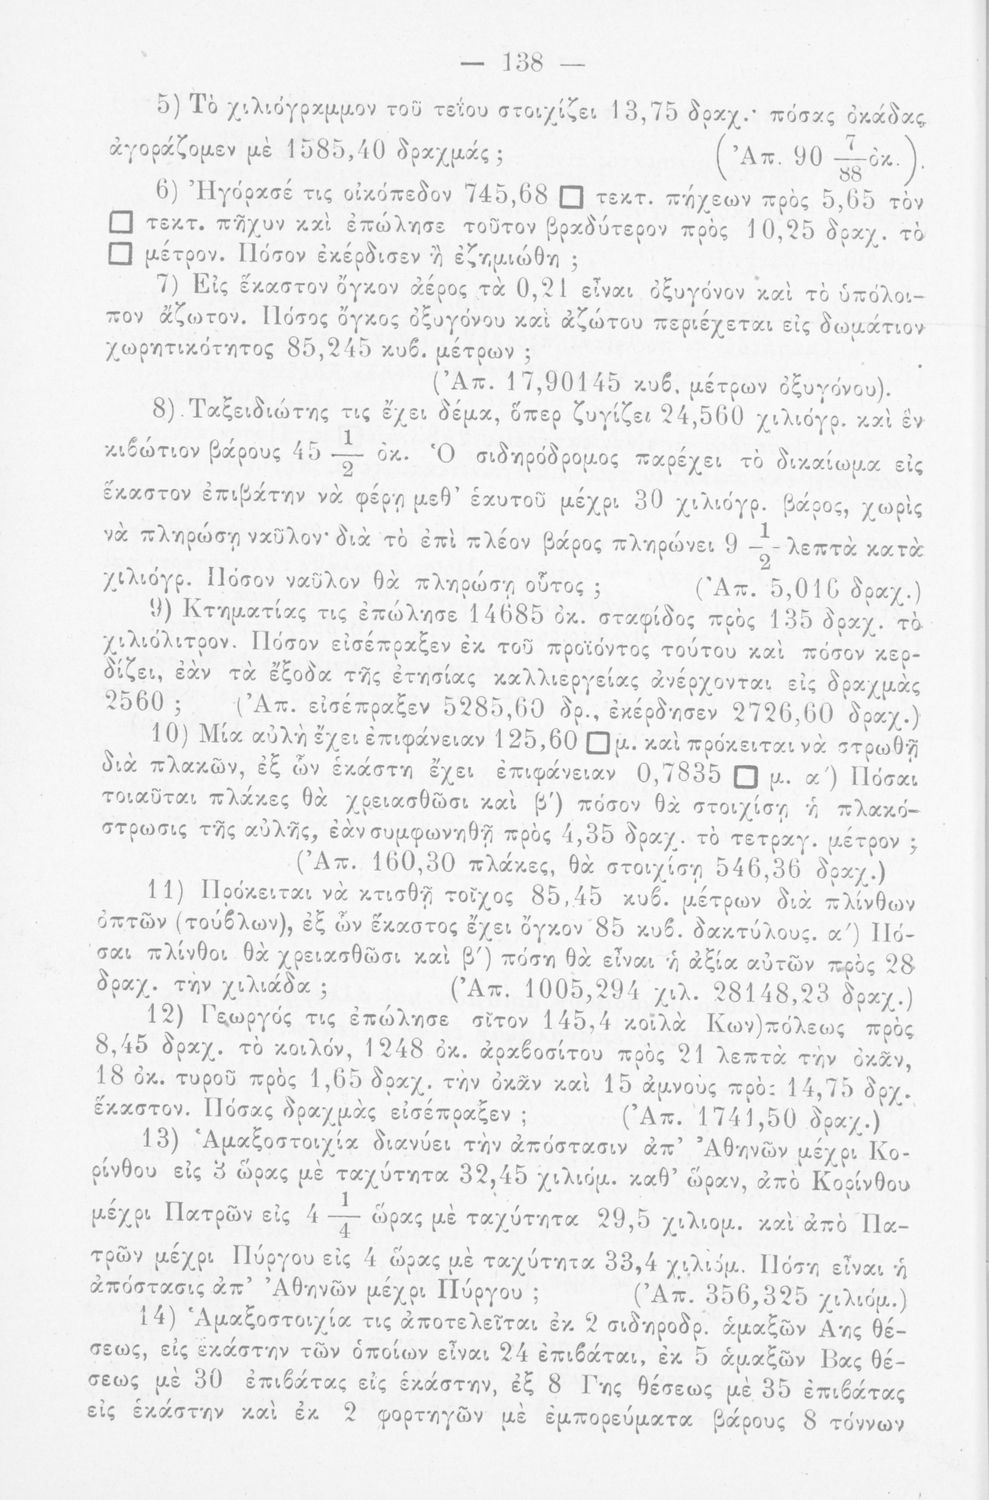 — 138 —
5) Τὸ χιλιόγραμμον τοῦ τεΐου στοιχίζει 13,75 δραχ.· πόσας ὀκάδας
ἀγοράζομεν μὲ 1585,40 δραχμάς ; (Ἀπ. 90 7/88 ὀκ.).
6) Ἠγόρασέ τις οἰκόπεδον 745,68 □ τεκτ. πήχεων πρὸς 5,65 τὸν
□ τεκτ. πῆχυν καὶ ἐπώλησε τοῦτον βραδύτερον πρὸς 10,25 δραχ. τὸ
□ μέτρον. Πόσον ἐκέρδισεν ἢ ἐζημιώθη ;
7) Εἰς ἕκαστον ὄγκον ἀέρος τὰ 0,21 εἶναι ὀξυγόνον καὶ τὸ ὑπόλοι-
πον ἄζωτον. Πόσος ὄγκος ὀξυγόνου καὶ ἀζώτου περιέχεται εἰς δωμάτιον
χωρητικότητος 85,245 κυβ. μέτρων ;
(Ἀπ. 17,90145 κυβ. μέτρων ὀξυγόνου).
8) Ταξειδιώτης τις ἔχει δέμα, ὅπερ ζυγίζει 24,560 χιλιόγρ. καὶ ἓν
κιβώτιον βάρους 45 1/2 ὀκ. Ὁ σιδηρόδρομος παρέχει τὸ δικαίωμα εἰς
ἕκαστον ἐπιβάτην νὰ φέρῃ μεθ’ ἑαυτοῦ μέχρι 30 χιλιόγρ. βάρος, χωρὶς
νὰ πληρώσῃ ναῦλον· διὰ τὸ ἐπὶ πλέον βάρος πληρώνει 9 1/2 λεπτὰ κατὰ
χιλιόγρ. Πόσον ναῦλον θὰ πληρώσῃ οὗτος ; (Ἀπ. 5,016 δραχ.)
9) Κτηματίας τις ἐπώλησε 14685 ὀκ. σταφίδος πρὸς 135 δραχ. τὸ
χιλιόλιτρον. Πόσον εἰσέπραξεν ἐκ τοῦ προϊόντος τούτου καὶ πόσον κερ-
δίζει, ἐὰν τὰ ἔξοδα τῆς ἐτησίας καλλιεργείας ἀνέρχονται εἰς δραχμὰς
2560 ; (Ἀπ. εἰσέπραξεν 5285,60 δρ., ἐκέρδησεν 2726,60 δραχ.)
10) Μία αὐλὴ ἔχει ἐπιφάνειαν 125,60 □ μ. καὶ πρόκειται νὰ στρωθῇ
διὰ πλακῶν, ἐξ ὧν ἑκάστη ἔχει ἐπιφάνειαν 0,7835 □ μ. α΄) Πόσαι
τοιαῦται πλάκες θὰ χρειασθῶσι καὶ β΄) πόσον θὰ στοιχίσῃ ἡ πλακό-
στρωσις τῆς αὐλῆς, ἐὰν συμφωνηθῇ πρὸς 4,35 δραχ. τὸ τετραγ. μέτρον ;
(Ἀπ. 160,30 πλάκες, θὰ στοιχίσῃ 546,36 δραχ.)
11) Πρόκειται νὰ κτισθῇ τοῖχος 85,45 κυβ. μέτρων διὰ πλίνθων
ὀπτῶν (τούβλων), ἐξ ὧν ἕκαστος ἔχει ὄγκον 85 κυβ. δακτύλους. α΄) Πό-
σαι πλίνθοι θὰ χρειασθῶσι καὶ β΄) πόση θὰ εἶναι ἡ ἀξία αὐτῶν πρὸς 28
δραχ. τὴν χιλιάδα ; (Ἀπ. 1005,294 χιλ. 28148,23 δραχ.)
12) Γεωργός τις ἐπώλησε σῖτον 145,4 κοιλὰ Κων)πόλεως πρὸς
8,45 δραχ. τὸ κοιλόν, 1248 ὀκ. ἀραβοσίτου πρὸς 21 λεπτὰ τὴν ὀκᾶν,
18 ὀκ. τυροῦ πρὸς 1,65 δραχ. τὴν ὀκᾶν καὶ 15 ἀμνοὺς πρὸς 14,75 δρχ.
ἕκαστον. Πόσας δραχμὰς εἰσέπραξεν ; (Ἀπ. 1741,50 δραχ.)
13) Ἁμαξοστοιχία διανύει τὴν ἀπόστασιν ἀπ’ Ἀθηνῶν μέχρι Κο-
ρίνθου εἰς 3 ὥρας μὲ ταχύτητα 32,45 χιλιόμ. καθ’ ὥραν, ἀπὸ Κορίνθου
μέχρι Πατρῶν εἰς 4 1/4 ὥρας μὲ ταχύτητα 29,5 χιλιομ. καὶ ἀπὸ Πα-
τρῶν μέχρι Πύργου εἰς 4 ὥρας μὲ ταχύτητα 33,4 χιλιόμ. Πόση εἶναι ἡ
ἀπόστασις ἀπ’ Ἀθηνῶν μέχρι Πύργου ; (Ἀπ. 356,325 χιλιόμ.)
14) Ἁμαξοστοιχία τις ἀποτελεῖται ἐκ 2 σιδηροδρ. ἁμαξῶν Αης θέ-
σεως, εἰς ἑκάστην τῶν ὁποίων εἶναι 24 ἐπιβάται, ἐκ 5 ἁμαξῶν Βας θέ-
σεως μὲ 30 ἐπιβάτας εἰς ἑκάστην, ἐξ 8 Γης θέσεως μὲ 35 ἐπιβάτας
εἰς ἑκάστην καὶ ἐκ 2 φορτηγῶν μὲ ἐμπορεύματα βάρους 8 τόννων